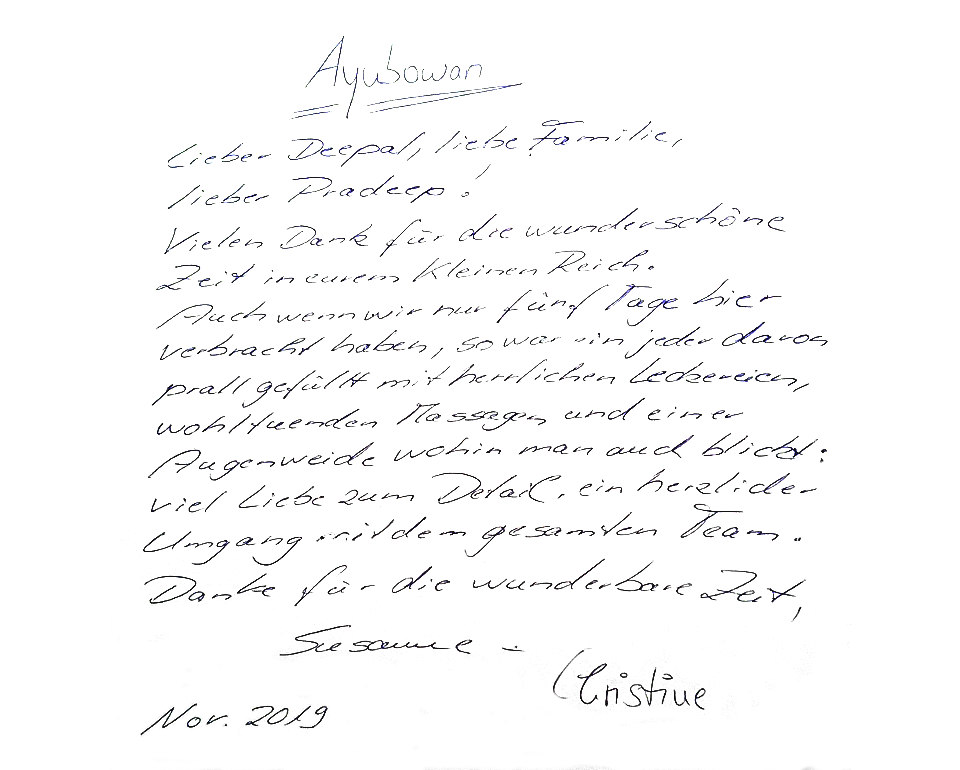 Ayubowan
Lieber Deepal, liebe Familie,
lieber Pradeep!
Vielen Dank für die wunderschöne
Zeit in eurem kleinen Reich.
Auch wenn wir nur fünf Tage hier
verbracht haben, so war ein jeder davon
prall gefüllt mit herrlichen Leckereien,
wohltuenden Massagen und einer
Augenweide wohin man auch blickt:
viel Liebe zum Detail, ein herzlicher
Umgang mit dem gesamten Team.
Danke für die wunderbare Zeit,
Susanne -
Christine
Nov. 2019